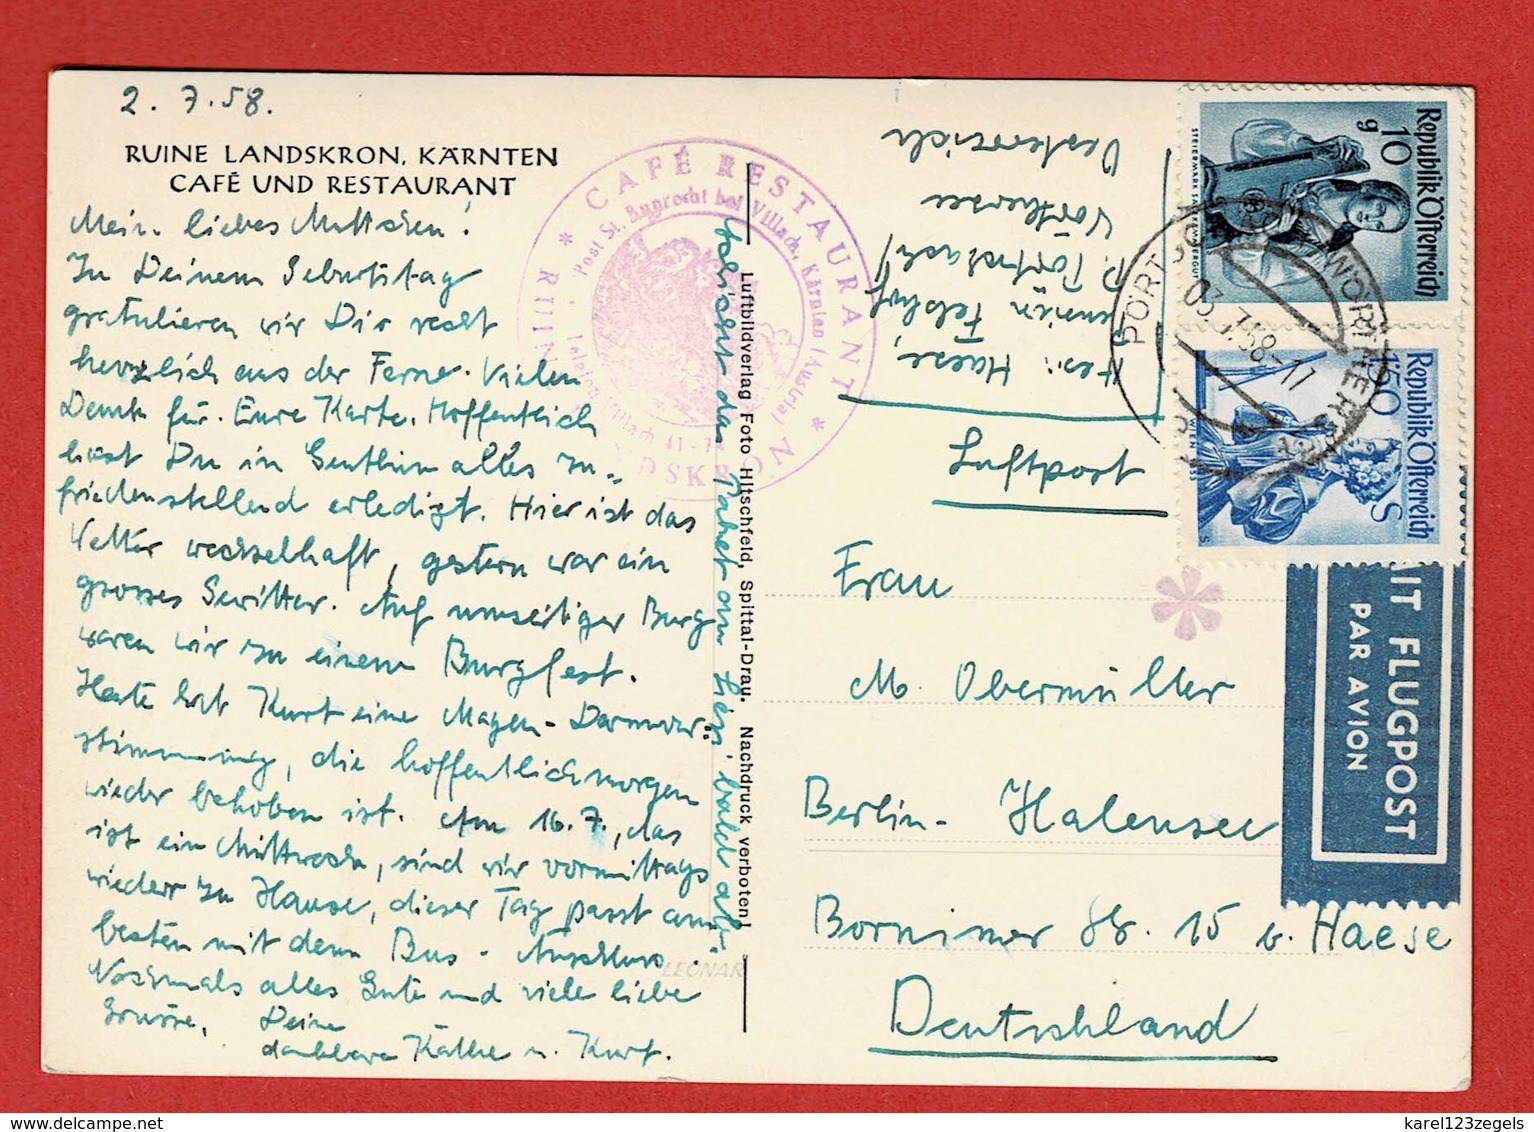 2. 7. 58.
RUINE LANDSKRON, KÄRNTEN
CAFÉ UND RESTAURANT
Mein liebes Muttchen!
Zu Deinem Geburtstag
gratulieren wir Dir recht
herzlich aus der Ferne. Vielen
Dank für Eure Karte. Hoffentlich
hast Du in Genthin alles zu-
friedenstellend erledigt. Hier ist das
Wetter wechselhaft, gestern war ein
grosses Gewitter. Auf umseitiger Burg
waren wir zu einem Burgfest.
Heute hat Kurt eine Magen-Darmver-
stimmung, die hoffentlich morgen
wieder behoben ist. Am 16. 7., das
ist ein Mittwoch, sind wir vormittags
wieder zu Hause, dieser Tag passt am
besten mit dem Bus-Anschluss.
Nochmals alles Gute und viele liebe
Grüsse, Deine
dankbare Käthe u. Kurt.
schickt das Paket an Liesi bald ab.
Luftbildverlag Foto Hitschfeld, Spittal-Drau. Nachdruck verboten!
* CAFÉ RESTAURANT *
RUINE LANDSKRON
Post St. Ruprecht bei Villach, Kärnten (Austria)
Telefon Villach 41-7
LEONAR
Haese,
Pension Felshof
P. Pörtschach/
Wörthersee
Oesterreich
Luftpost
Republik Österreich
10
g
STEIERMARK SALZKAMMERGUT
Republik Österreich
1·50
S
WIEN
PÖRTSCHACH AM WÖRTHERSEE
03.7.58-17
MIT FLUGPOST
PAR AVION
Frau
M. Obermüller
Berlin-Halensee
Bornimer Str. 15 b. Haese
Deutschland
karel123zegels